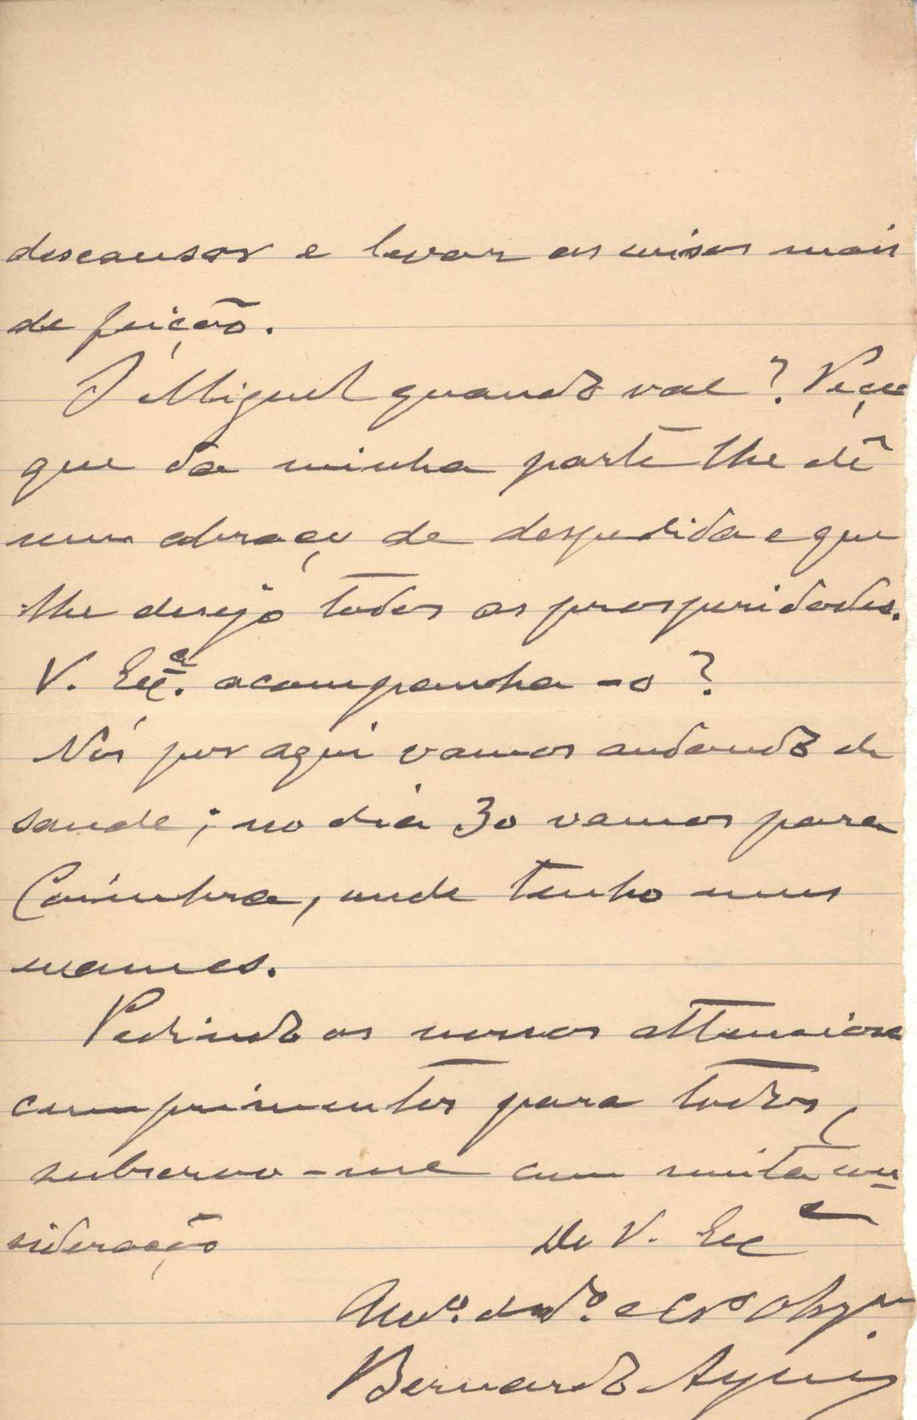 descansar e levar as coisas mais
de feição.
O Miguel quando vae? Peço
que da minha parte lhe dê
um abraço de despedida e que
lhe desejo todas as prosperidades.
V. Exc.ª acompanha-o?
Nós por aqui vamos andando de
saude; no dia 30 vamos para
Coimbra, onde tenho uns
exames.
Pedindo os nossos attenciosos
cumprimentos para todos,
subscrevo-me com muita con-
sideração De V. Exc.ª
Am.º e Cr.º Obg.mo
Bernardo